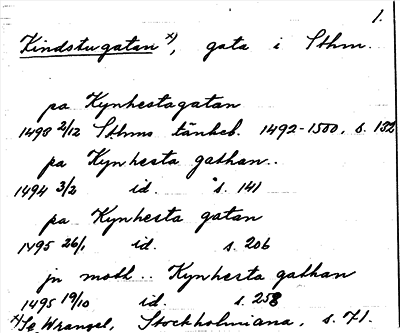 1.
Kindstugatan x), gata i Sthm.
pa Kynhestagatan
1493 2/12 Sthms tänkeb. 1492-1500, s. 132
pa Kynhesta gathan..
1494 3/2 id. s. 141
pa Kynhesta gatan
1495 26/1 id. s. 206
jn moth .. Kynhesta gathan
1495 19/10 id. s. 258
x) Se Wrangel, Stockholmiana, s. 71.